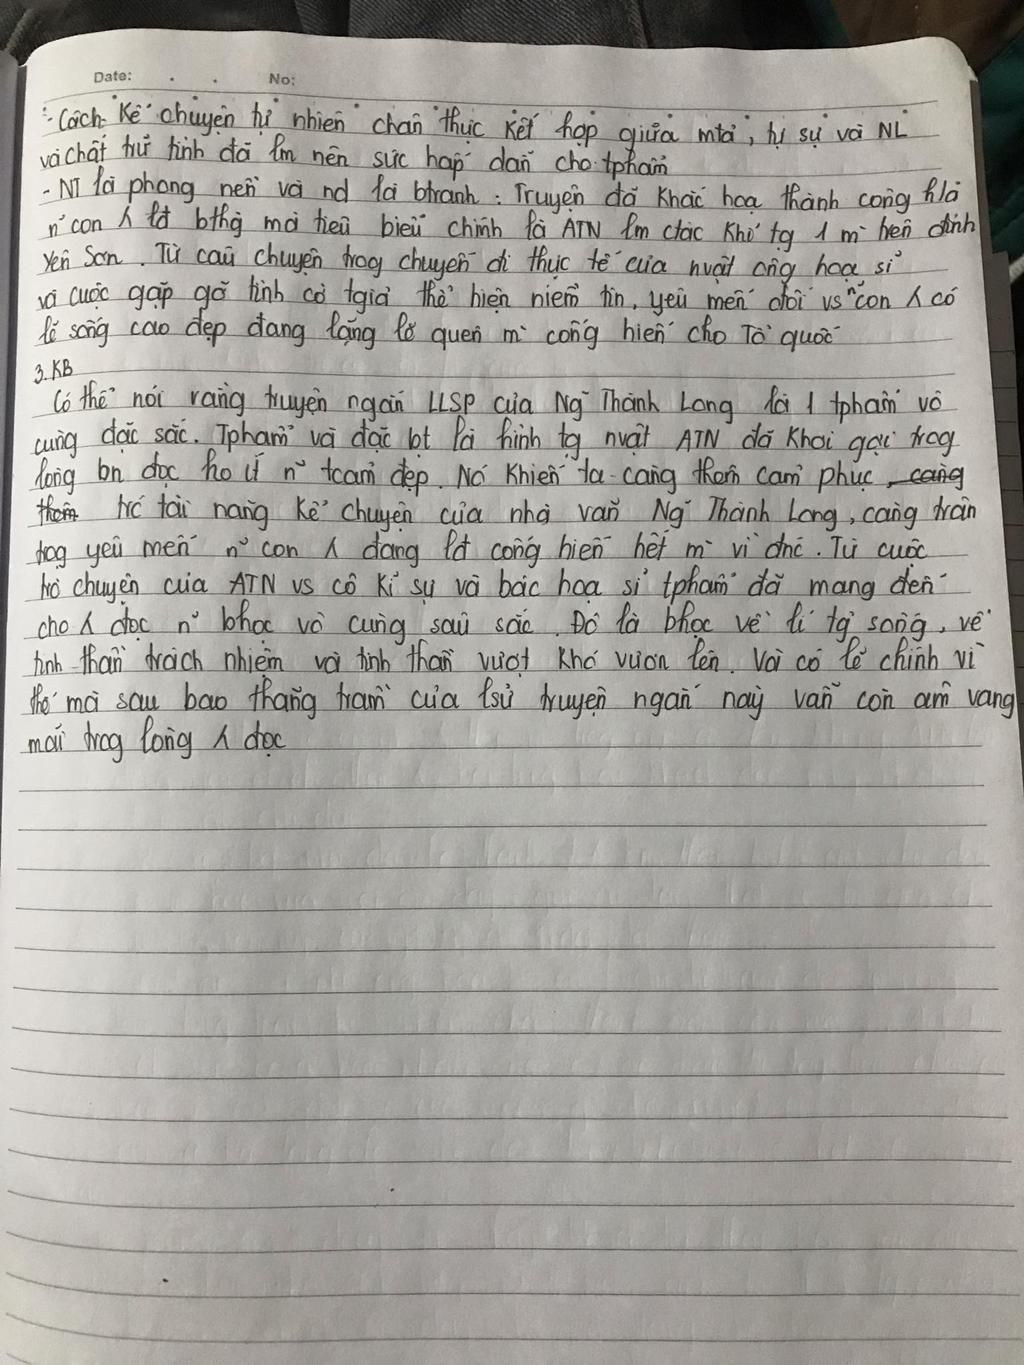 Date: . . No:
- Cách kể chuyện tự nhiên chân thực kết hợp giữa mtả, tự sự và NL
và chất trữ tình đã lm nên sức hấp dẫn cho tphẩm
- NT là phông nền và nd là btranh : Truyện đã khắc hoạ thành công h/ả
n~ con λ lđ bthg mà tiêu biểu chính là ATN lm ctác khí tg 1 m trên đỉnh
Yên Sơn. Từ câu chuyện trog chuyến đi thực tế của nvật ông hoạ sĩ
và cuộc gặp gỡ tình cờ tgiả thể hiện niềm tin, yêu mến đối vs n~ con λ có
lẽ sống cao đẹp đang lặng lẽ quên m cống hiến cho Tổ quốc
3. KB
Có thể nói rằng truyện ngắn LLSP của Ng~ Thành Long là 1 tphẩm vô
cùng đặc sắc. Tphẩm và đặc bt là hình tg nvật ATN đã khơi gợi trog
lòng bn đọc n~ tcảm đẹp. Nó khiến ta càng thêm cảm phục, càng
thêm trc tài năng kể chuyện của nhà văn Ng~ Thành Long, càng trân
trog yêu mến n~ con λ đang lđ cống hiến hết m vì đnc. Từ cuộc
trò chuyện của ATN vs cô kĩ sư và bác hoạ sĩ tphẩm đã mang đến
cho λ đọc n~ bhọc vô cùng sâu sắc. Đó là bhọc về lí tg sống, về
tinh thần trách nhiệm và tinh thần vượt khó vươn lên. Và có lẽ chính vì
thế mà sau bao thăng trầm của lsử truyện ngắn này vẫn còn âm vang
mãi trog lòng λ đọc